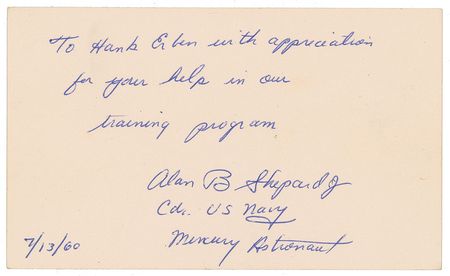 To Hank Erben with appreciation
for your help in our
training program
Alan B Shepard Jr
Cdr. US Navy
Mercury Astronaut
7/13/60